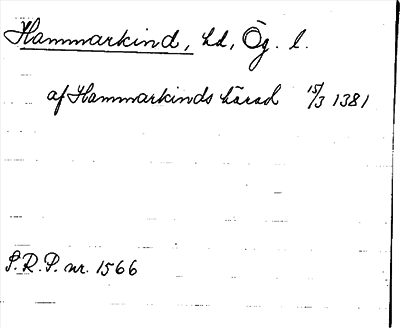 Hammarkind, hd, Ög. l.
af Hammarkinds härad 15/3 1381
S.R.P. nr. 1566